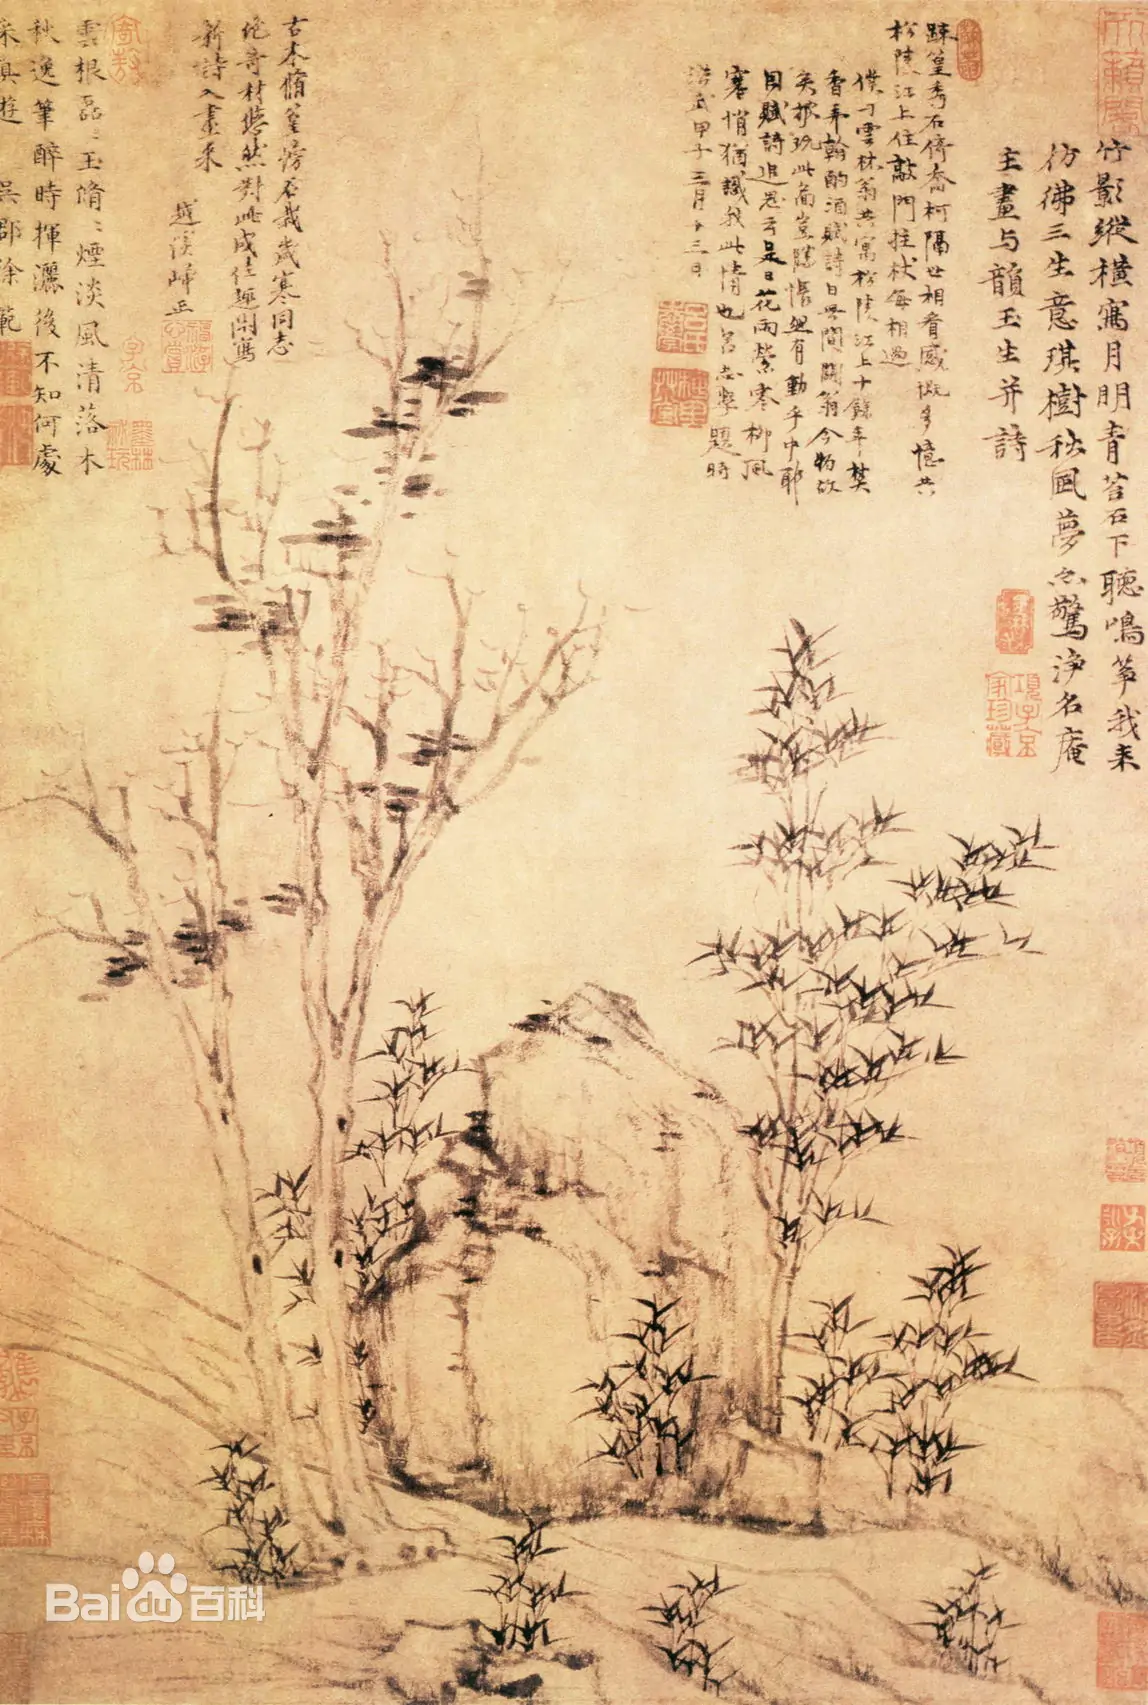 竹影縱横寫月明青苔石下聽鳴箏我来
仿彿三生意琪樹秋風夢忽驚淨名庵
主畫与韻玉生并詩
踈篁秀石倚喬柯隔世相看感慨多憶共
松陵江上住敲門拄杖每相過
僕与雲林翁共寓松陵江上十餘年焚
香弄翰酌酒賦詩日無間闕翁今物故
矣披玩此啚豈勝悵然有動乎中耶
因賦詩追思云是日花雨縈寒柳風
寒悄猶識我此情也呂志學題時
洪武甲子三月十三日
古木脩篁傍石栽歲寒同志
絶奇材悠然對此成佳趣閑寫
新詩入畫来
雲根磊磊玉脩脩煙淡風清落木
秋逸筆醉時揮灑後不知何處
采真遊 吳郡徐範
項子京
家珍藏
子京
墨林
秘玩
Bai百科